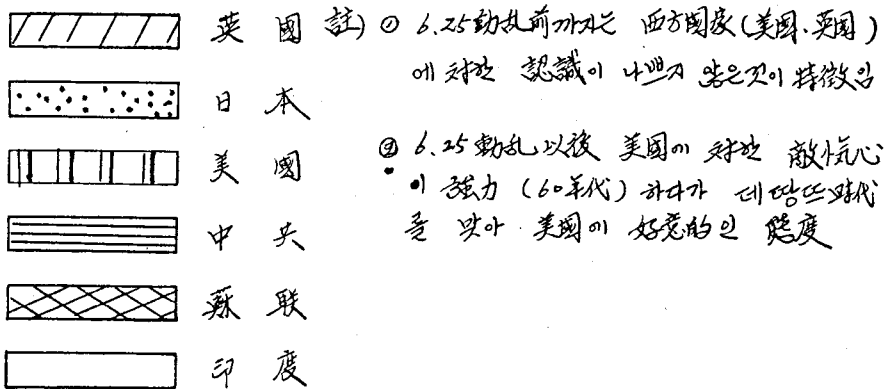 英國
日本
美國
中共
蘇联
印度
註) ① 6.25動乱前까지는 西方國家(美國.英国)
에 対한 認識이 나쁘지 않은것이 特徵임
② 6.25動乱以後 美国에 対한 敵忾心
이 強力 (60年代) 하다가 데땅뜨時代
를 맞아 美國에 好意的인 態度